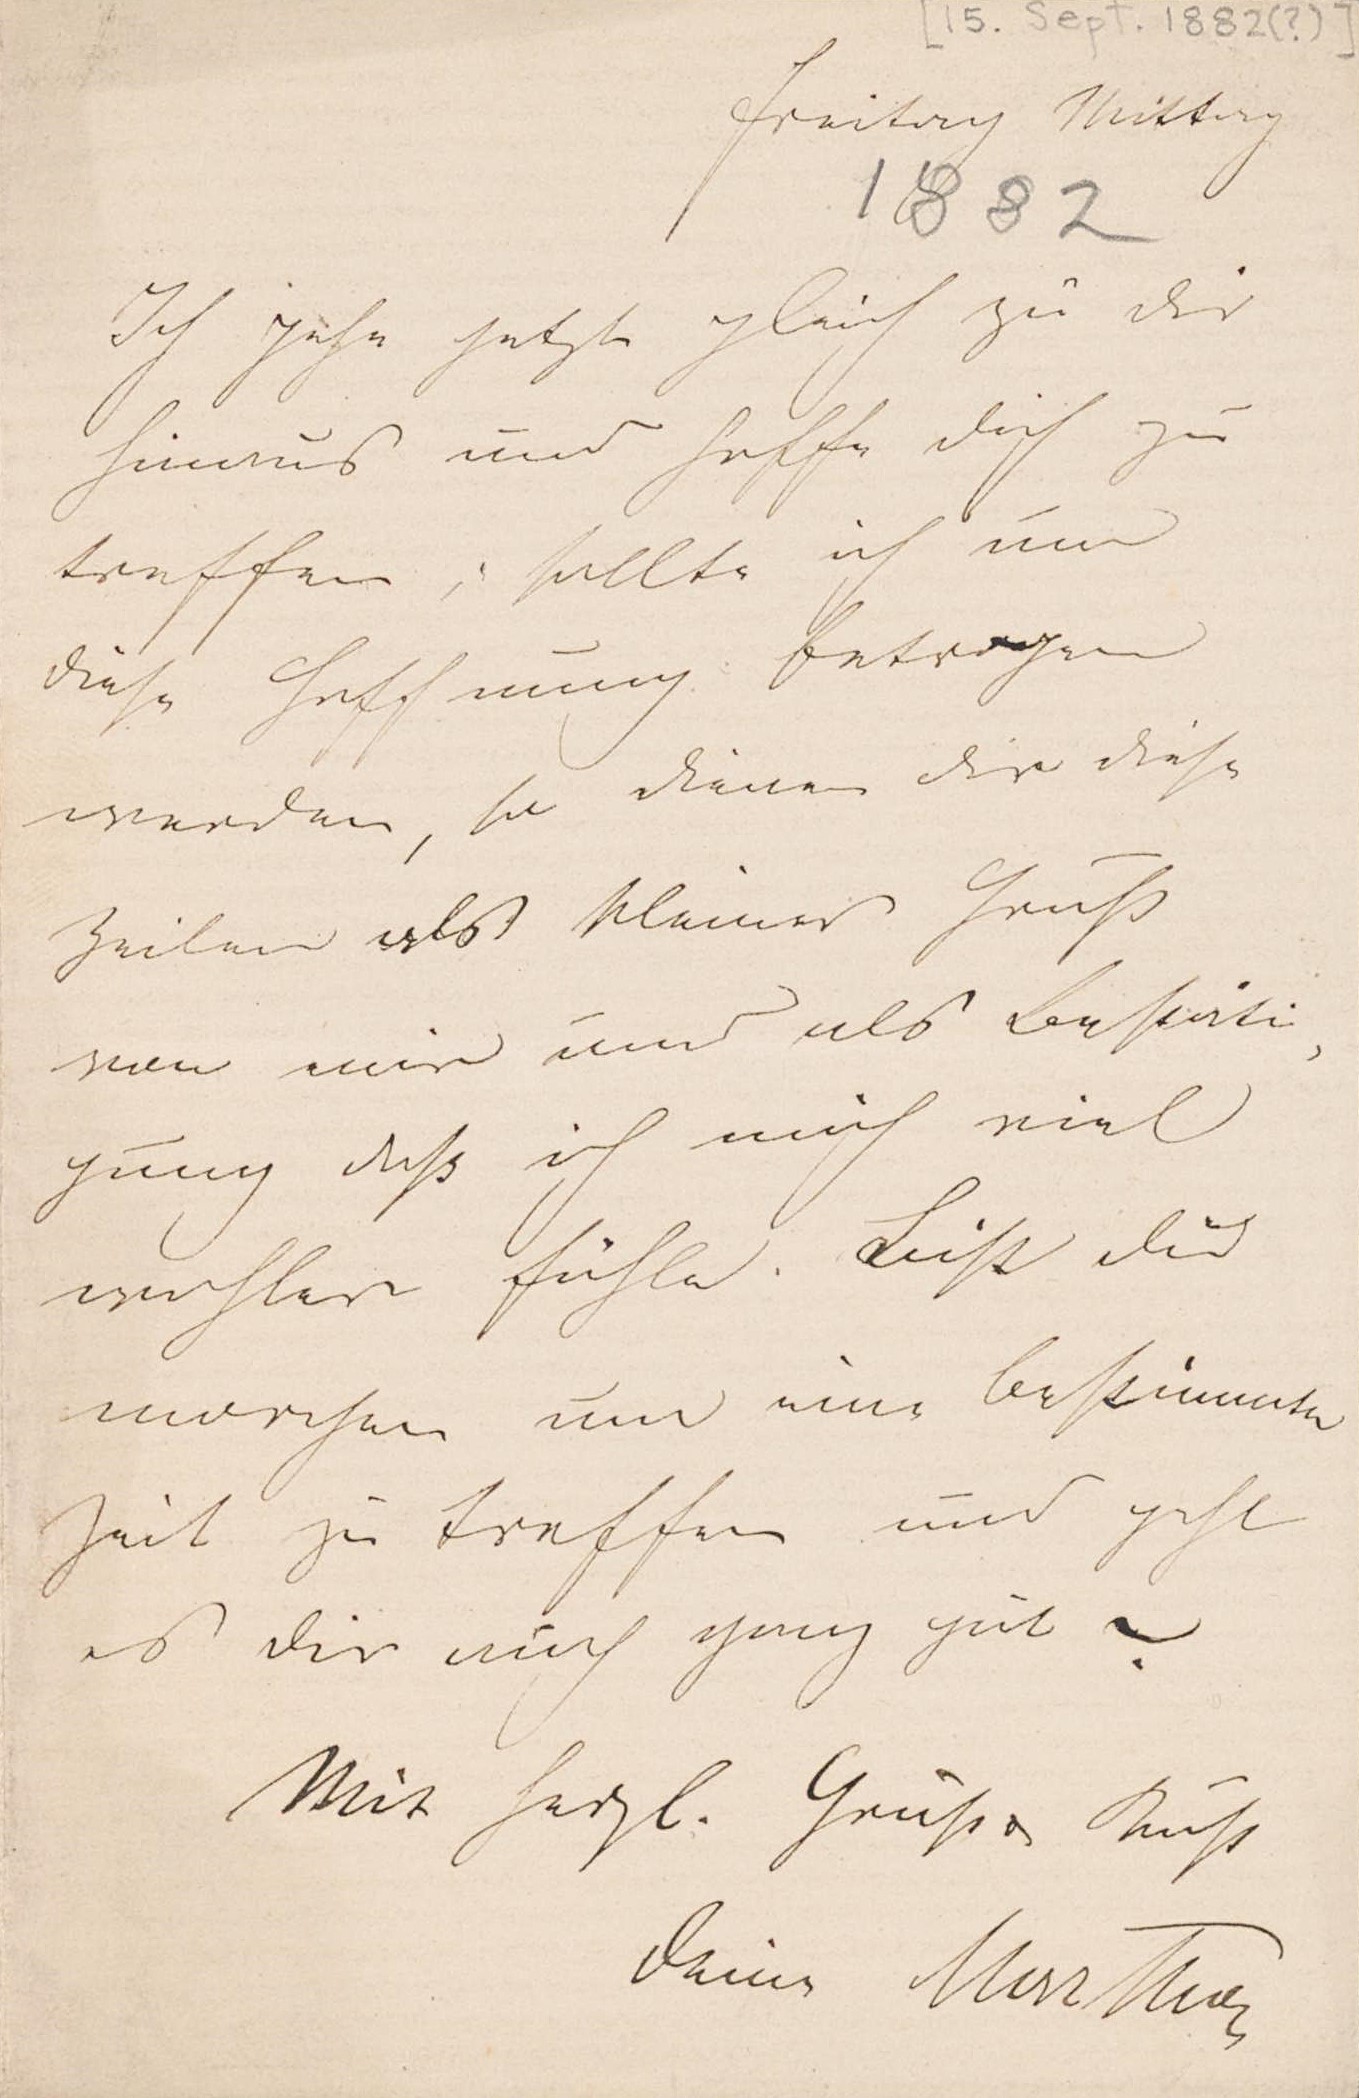 [15. Sept. 1882(?)]
Freitag Mittag
1882
Ich gehe jetzt gleich zu dir
hinaus und hoffe dich zu
treffen; sollte ich um
diese Hoffnung betrogen
werden, so dienen dir diese
Zeilen als kleiner Gruß
von mir und als Bestäti-
gung daß ich mich viel
wohler fühle. Bist du
morgen um eine bestimmte
Zeit zu treffen und geht
es dir auch ganz gut?
Mit herzl. Gruß u Kuß
deine Martha